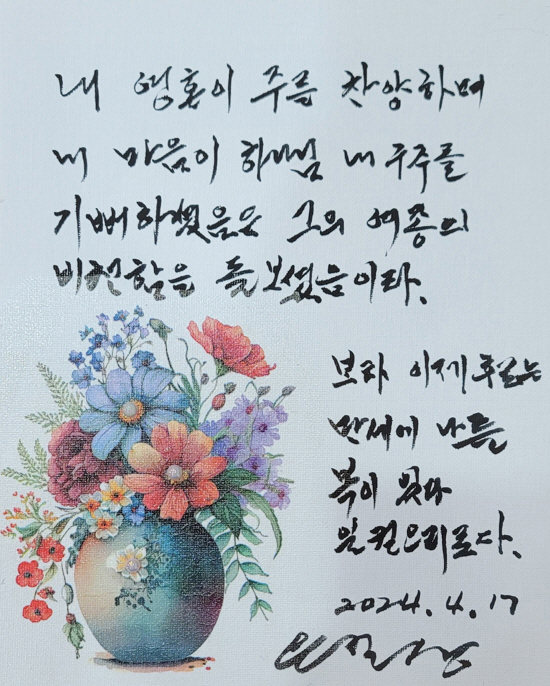 내 영혼이 주를 찬양하며
내 마음이 하나님 내 구주를
기뻐하였음은 그의 여종의
비천함을 돌보셨음이라.
보라 이제 후로는
만세에 나를
복이 있다
일컬으리로다.
2024. 4. 17